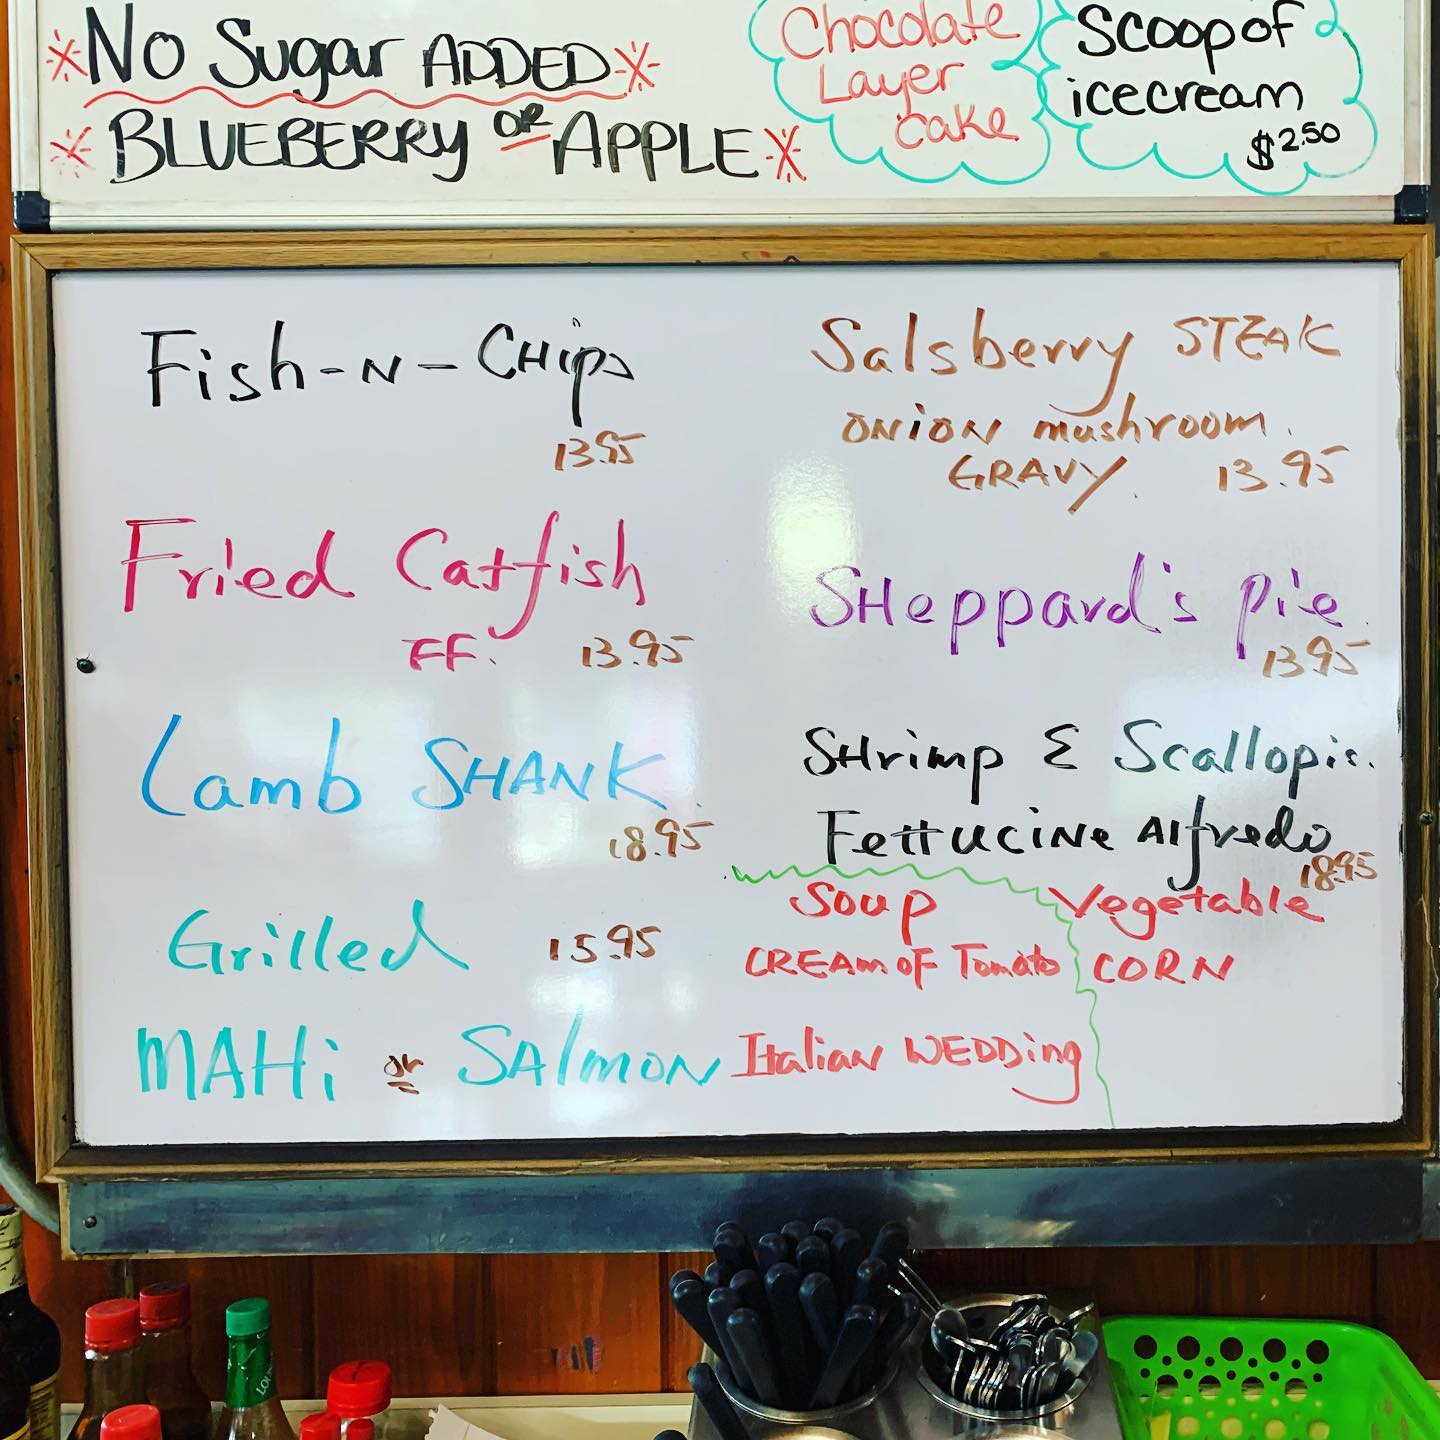 No Sugar ADDED
BLUEBERRY OR APPLE
Chocolate
Layer
cake
Scoop of
icecream
$2.50
Fish-N-CHips
13.95
Fried Catfish
FF. 13.95
Lamb SHANK.
18.95
Grilled 15.95
MAHi or SAlmoN
Salsberry STEAK
ONiON mushroom.
GRAVY. 13.95
SHeppard's Pie
13.95
SHrimp & Scallopis.
FettUCiNE Alfredo
18.95
Soup
CREAm OF Tomato
Italian WEDDing
Vegetable
CORN